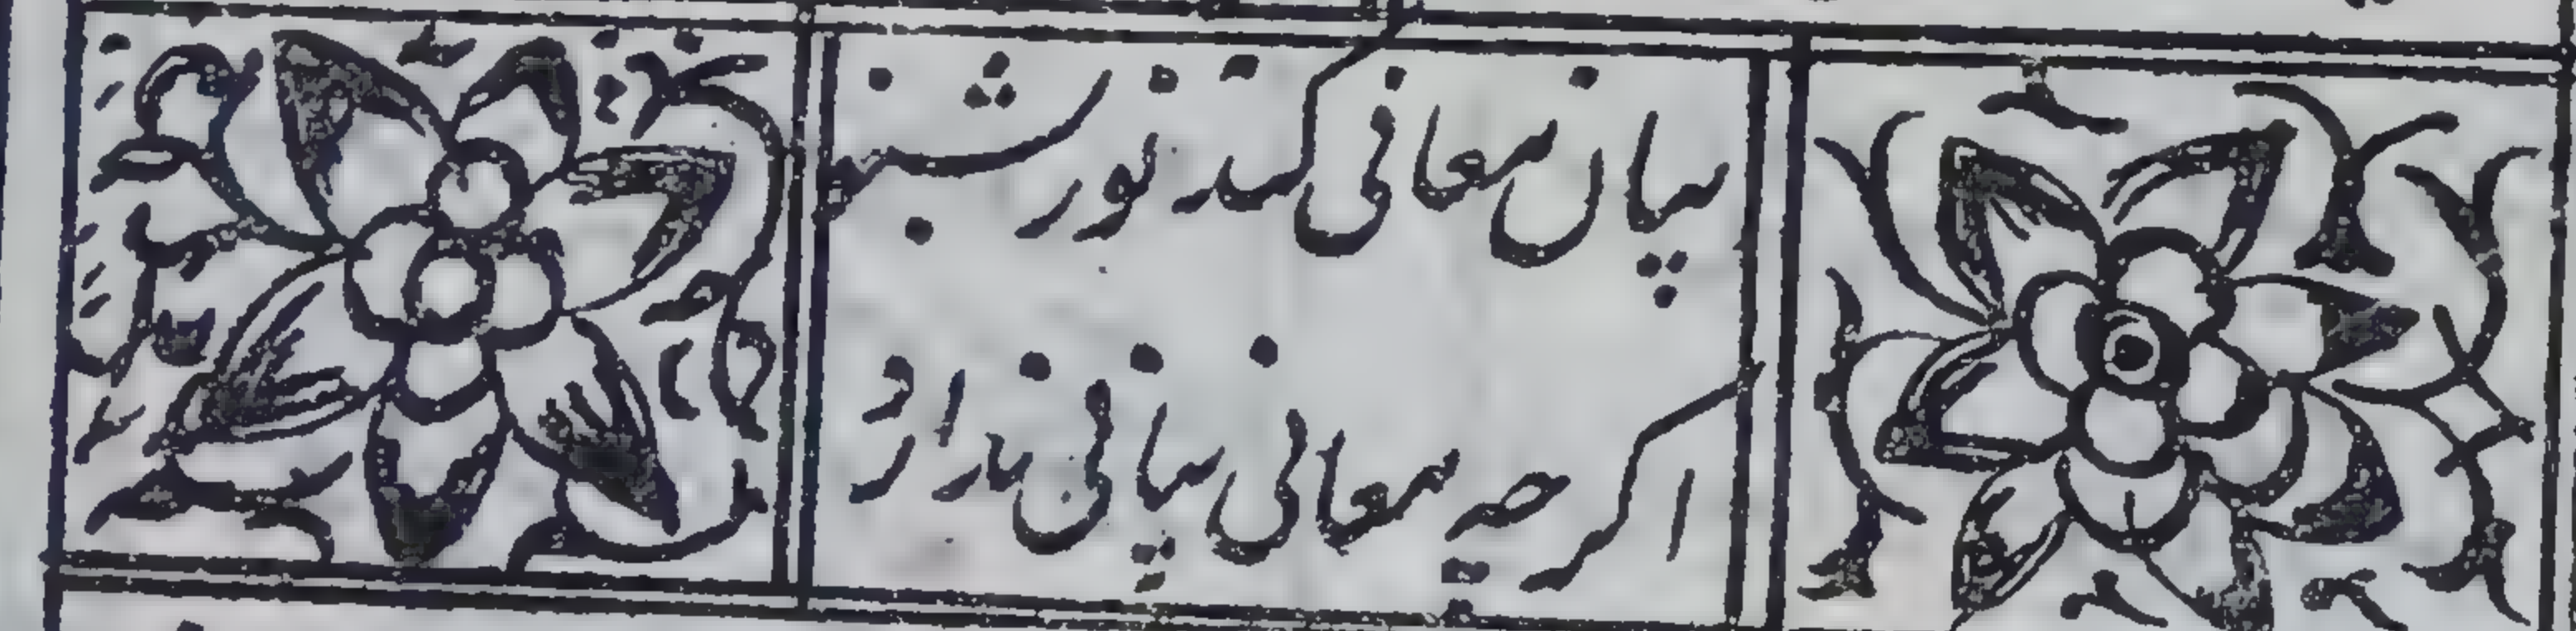 پیان معانی کند نور شب
اگرچه معانی پیانی ندارد